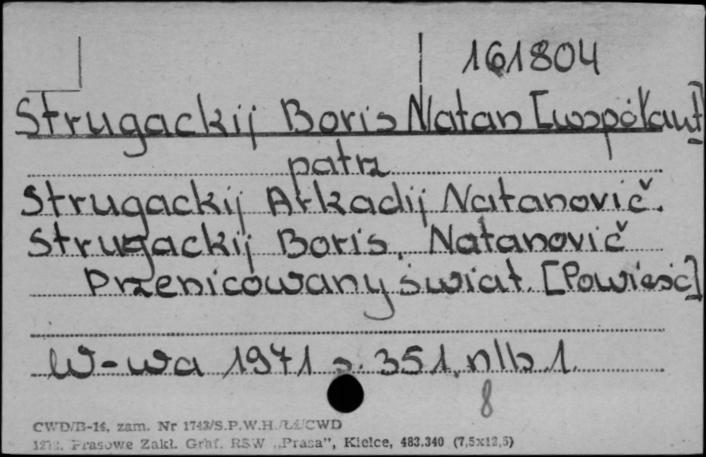 161804
Strugackij Boris Natan [współaut]
patrz
Strugackij Arkadij Natanovič.
Strugackij Boris. Natanovič
Przenicowany świat. [Powieść]
W-wa 1971 s. 351, nlb 1.
8
CWD/B-16, zam. Nr 1743/S.P.W.H./Łź/CWD
Prasowe Zakł. Graf. RSW „Prasa”, Kielce, 483.340 (7,5x12,5)